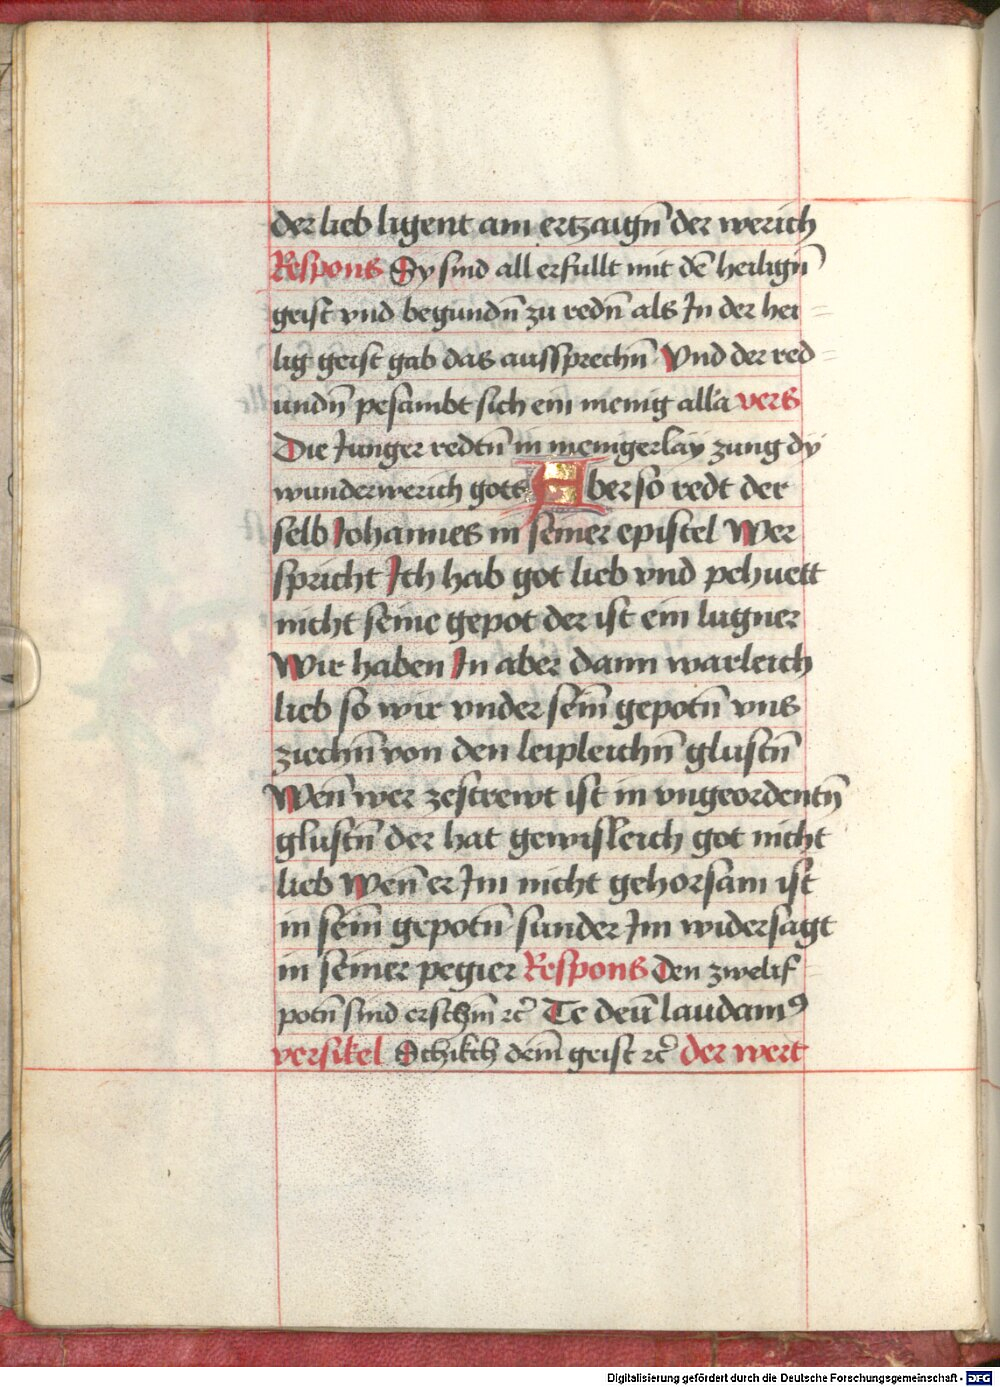 der lieb ligent am ertzaign̄ der werich
Respons Sy sind all erfullt mit dē heilign̄
geist vnd begundn̄ zu redn̄ als Jn der hei=
lig geist gab das aussprechn̄ Vnd der red=
undn̄ pesambt sich ein menig alla vers
Die Junger redtn̄ in menigerlay zung dy
wunderwerich gots Aber so redt der
selb Johannes in seiner epistel Wer
spricht Jch hab got lieb vnd pehuett
nicht seine gepot der ist ein lugner
Wir haben Jn aber dann warleich
lieb so wir vnder sein̄ gepotn̄ vns
ziechn̄ von den leipleichn̄ glustn̄
Wen̄ wer zestrewt ist in vngeordentn̄
glustn̄ der hat gewisleich got nicht
lieb Wen̄ er Jm nicht gehorsam ist
in sein̄ gepotn̄ sunder Jm widersagt
in seiner pegier Respons Den zwelif
potn̄ sind erschin̄ ꝛc̄ Te deū laudamꝰ
versikel Schikch dein̄ geist ꝛc̄ der wert
Digitalisierung gefördert durch die Deutsche Forschungsgemeinschaft - DFG